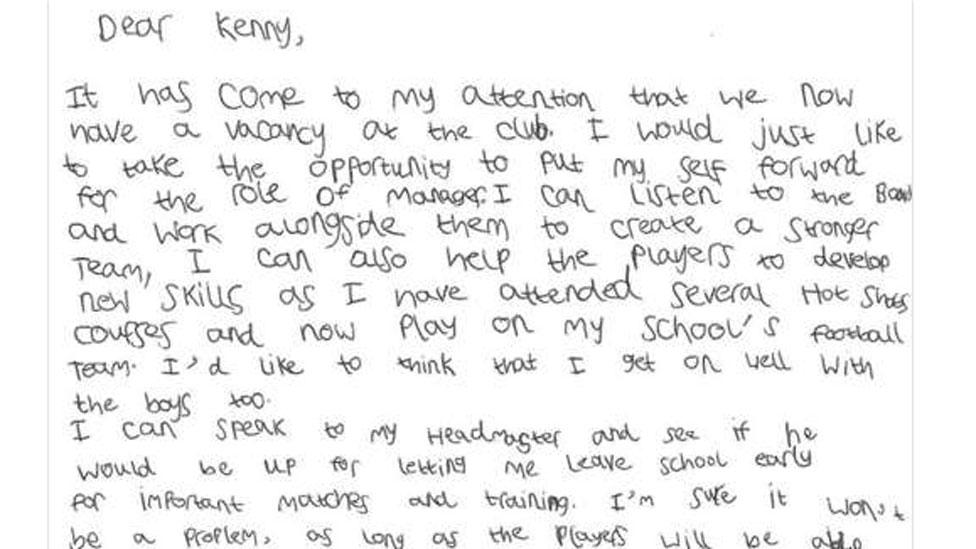 Dear Kenny,
It has come to my attention that we now
have a vacancy at the club. I would just like
to take the opportunity to put my self forward
for the role of manager. I can listen to the
and work alongside them to create a stronger
Team, I can also help the players to develop
new skills as I have attended several Hot Shots
courses and now play on my school's football
Team. I'd like to think that I get on well with
the boys too.
I can speak to my Headmaster and see if he
would be up for letting me leave school early
for important matches and training. I'm sure it won't
be a problem, as long as the players will be able